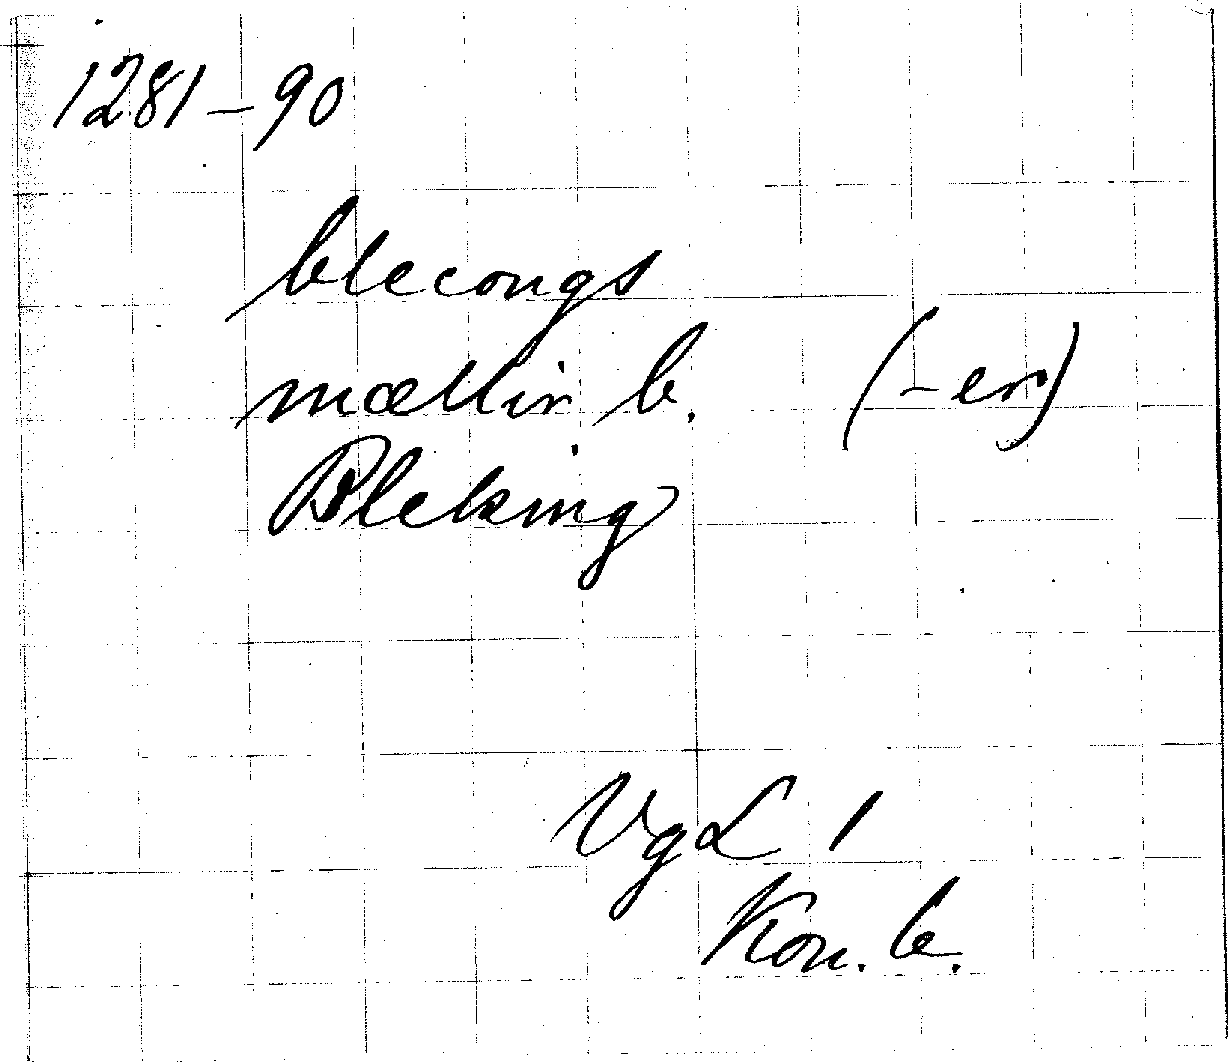 1281-90
blecongs
mællir b. (-er)
Bleking
VgL 1
Kon. b.